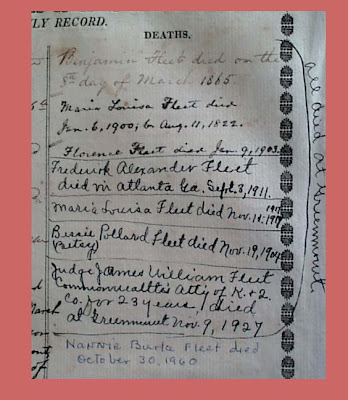 LY RECORD.
DEATHS.
Benjamin Fleet died on the
8th day of March 1865.
Maria Louisa Fleet died
Jan. 6, 1900; b. Aug. 11, 1822.
Florence Fleet died Jan. 9, 1903.
Frederick Alexander Fleet
died in Atlanta Ga. Sept. 3, 1911.
Maria Louisa Fleet died Nov. 14, 1917
Bessie Pollard Fleet died Nov. 19, 1904
(Betsy)
Judge James William Fleet
Commonwealth's Atty of K. + Q.
Co. for 23 years, died
at Greenmount Nov. 9, 1927
Nannie Burke Fleet died
October 30, 1960
all died at Greenmount